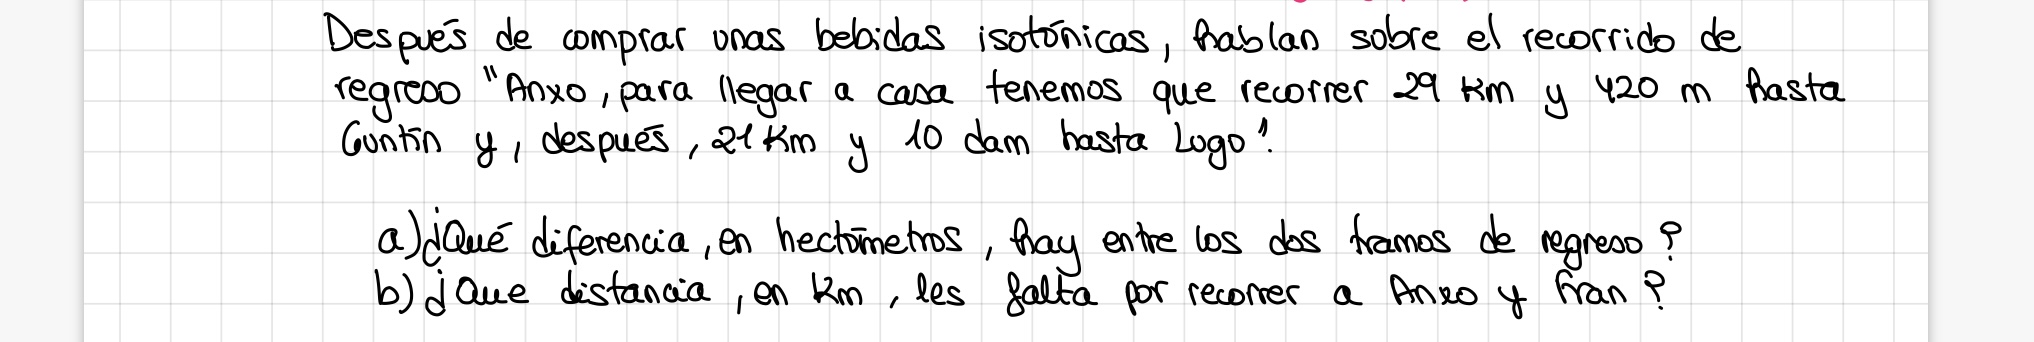 Después de comprar unas bebidas isotónicas, hablan sobre el recorrido de
regreso "Anxo, para llegar a casa tenemos que recorrer 29 Km y 420 m hasta
Guntín y, después, 21 Km y 10 dam hasta Lugo".
a) ¿Qué diferencia, en hectómetros, hay entre los dos tramos de regreso?
b) ¿Que distancia, en Km, les falta por recorrer a Anxo y Fran?